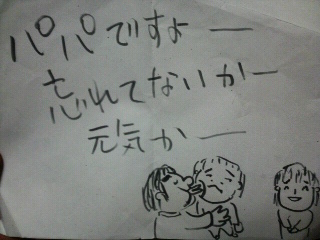 パパですよー
忘れてないかー
元気かー